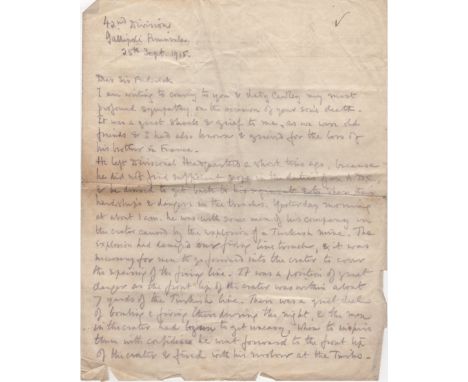 42nd Division
Gallipoli Peninsula
25th Sept. 1915.
Dear Sir Frederick
I am writing to convey to you & Lady Cawley my most
profound sympathy on the occasion of your son's death.
It was a great shock & grief to me, as we were old
friends & I had also known & grieved for the loss of
his brother in France.
He left Divisional Headquarters a short time ago, because
he did not find sufficient scope in the duties of an ADC
& he desired to get back to his regiment & to share the
hardships & dangers in the trenches. Yesterday morning
at about 1 am. he was with some men of his company in
the crater caused by the explosion of a Turkish mine. The
explosion had damaged our firing line trench, & it was
necessary for men to go forward into the crater to cover
the repairing of the firing line. It was a position of great
danger as the front lip of the crater was within about
7 yards of the Turkish line. There was a great deal
of bombing & firing there during the night, & the men
in the crater had begun to get uneasy, when to inspire
them with confidence he went forward to the front lip
of the crater & fired with his revolver at the Turks.